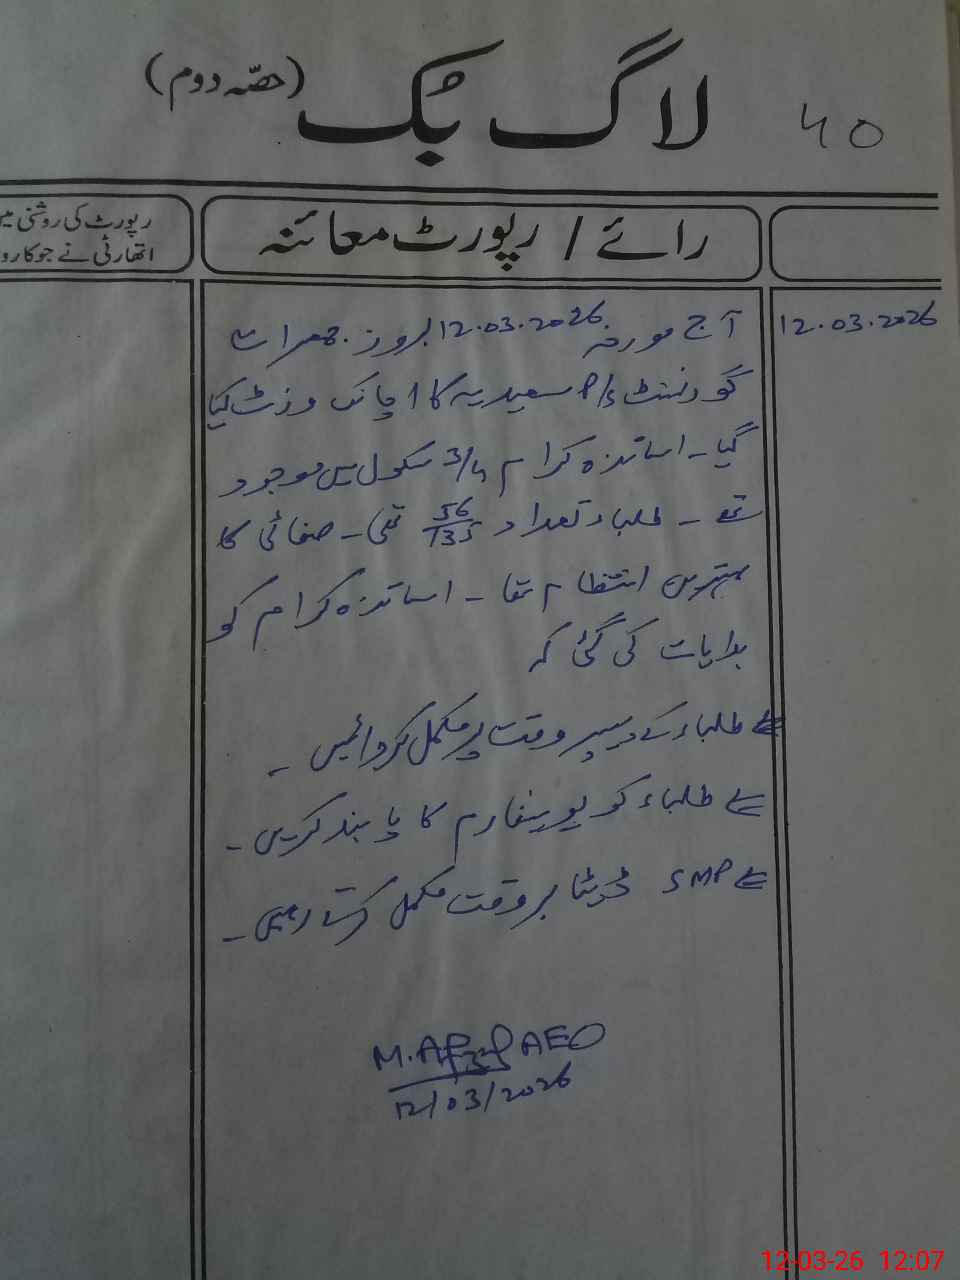 40
لاگ بُک (حصّہ دوم)
رائے / رپورٹ معائنہ
رپورٹ کی روشنی میں
اتھارٹی نے جو کارو
12.03.2026
آج مورخہ 12.03.2026 بروز جمعرات
گورنمنٹ P/S سعیدیہ کا اچانک وزٹ کیا
گیا۔ اساتذہ کرام 3/4 سکول میں موجود
تھے۔ طلباء تعداد 56/135 تھی۔ صفائی کا
بہترین انتظام تھا۔ اساتذہ کرام کو
ہدایات کی گئی کہ
طلباء کے پیپر وقت پر مکمل کروائیں۔
طلباء کو یونیفارم کا پابند کریں۔
SMP ڈیٹا بروقت مکمل کرتے رہیں۔
M. Afzal AEO
12/03/2026
12-03-26 12:07